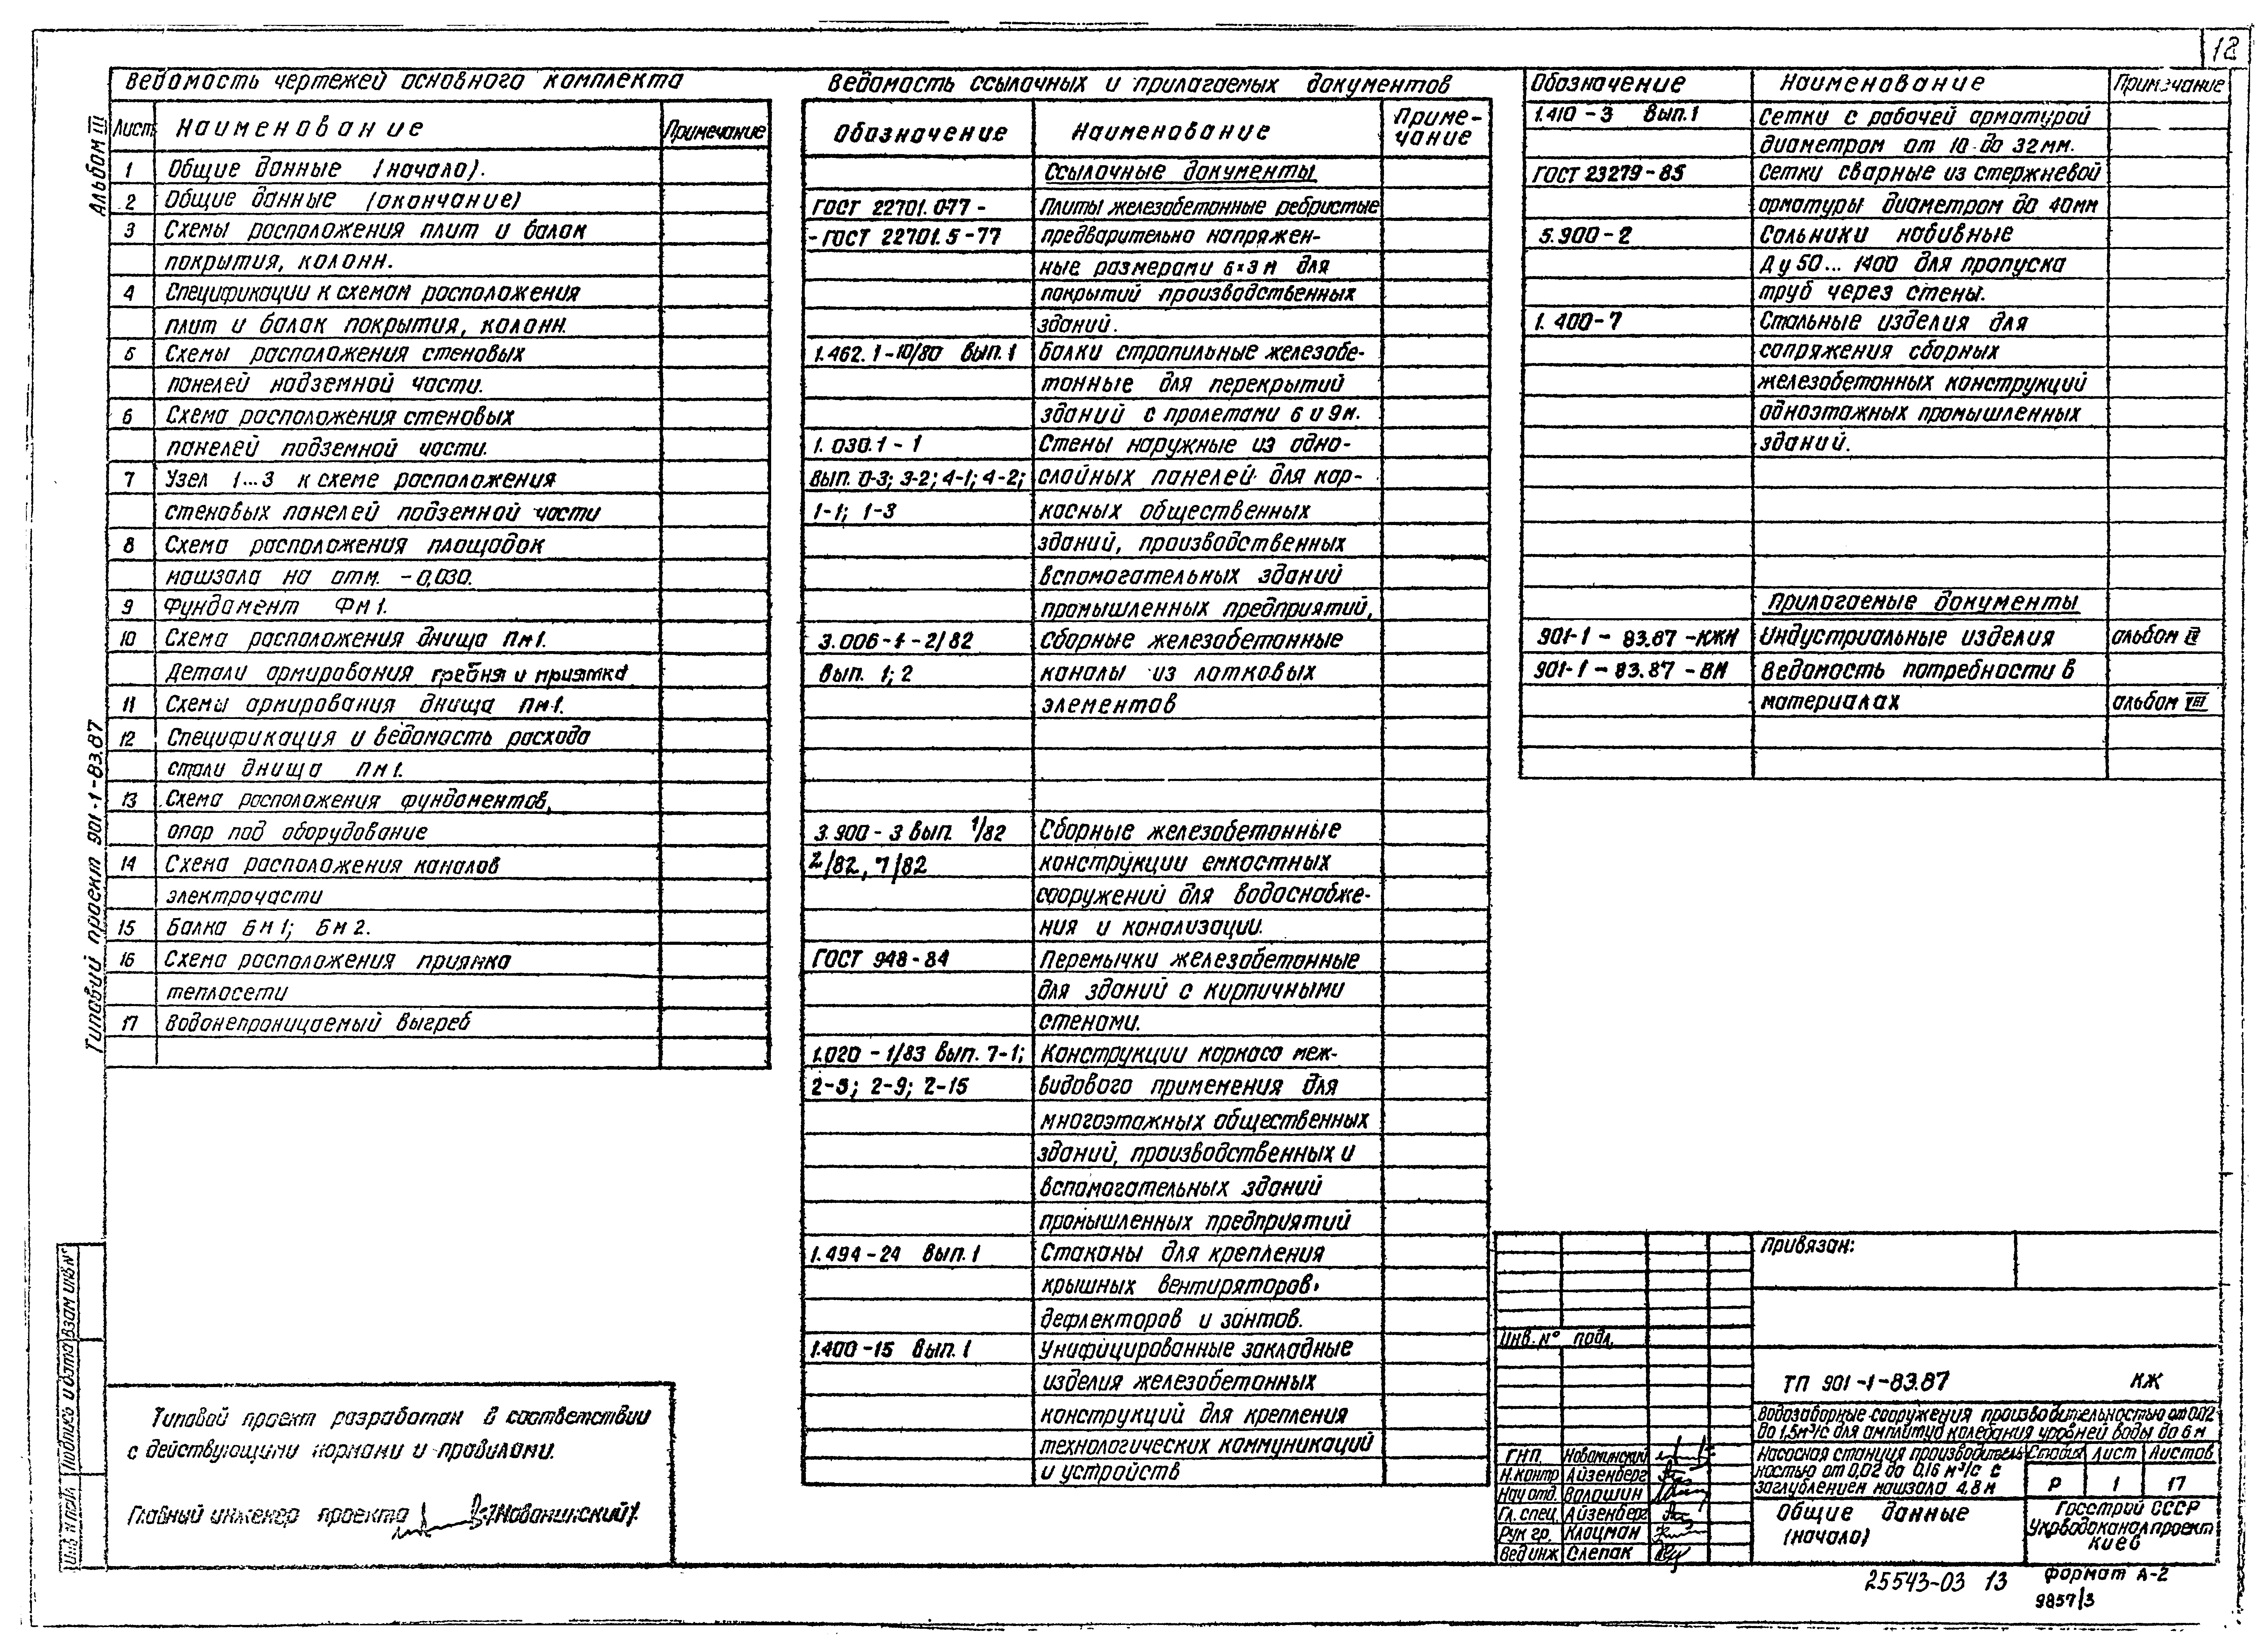 12
Альбом III
Типовий проект 901-1-83.87
Ведомость чертежей основного комплекта
Лист Наименование Примечание
1 Общие данные (начало).
2 Общие данные (окончание)
3 Схемы расположения плит и балок
покрытия, колонн.
4 Спецификации к схемам расположения
плит и балок покрытия, колонн.
5 Схемы расположения стеновых
панелей надземной части.
6 Схема расположения стеновых
панелей подземной части.
7 Узел 1...3 к схеме расположения
стеновых панелей подземной части
8 Схема расположения площадок
машзала на отм. -0,030.
9 Фундамент Фм1.
10 Схема расположения днища Пм1.
Детали армирования гребня и приямка
11 Схемы армирования днища Пм1.
12 Спецификация и ведомость расхода
стали днища Пм1.
13 Схема расположения фундаментов,
опор под оборудование
14 Схема расположения каналов
электрочасти
15 Балка Бм1; Бм2.
16 Схема расположения приямка
теплосети
17 Водонепроницаемый выгреб
Ведомость ссылочных и прилагаемых документов
Обозначение Наименование Приме-
чание
Ссылочные документы
ГОСТ 22701.0-77 - Плиты железобетонные ребристые
- ГОСТ 22701.5-77 предварительно напряжен-
ные размерами 6×3м для
покрытий производственных
зданий.
1.462.1-10/80 вып.1 Балки стропильные железобе-
тонные для перекрытий
зданий с пролетами 6 и 9м.
1.030.1-1 Стены наружные из одно-
вып. 0-3; 3-2; 4-1; 4-2; слойных панелей для кар-
1-1; 1-3 касных общественных
зданий, производственных
вспомогательных зданий
промышленных предприятий,
3.006-1-2/82 Сборные железобетонные
вып. 1; 2 каналы из лотковых
элементов
3.900-3 вып. 1/82 Сборные железобетонные
2/82, 7/82 конструкции емкостных
сооружений для водоснабже-
ния и канализации.
ГОСТ 948-84 Перемычки железобетонные
для зданий с кирпичными
стенами.
1.020-1/83 вып. 7-1; Конструкции каркаса меж-
2-5; 2-9; 2-15 видового применения для
многоэтажных общественных
зданий, производственных и
вспомогательных зданий
промышленных предприятий
1.494-24 вып.1 Стаканы для крепления
крышных вентиряторов,
дефлекторов и зонтов.
1.400-15 вып.1 Унифицированные закладные
изделия железобетонных
конструкций для крепления
технологических коммуникаций
и устройств
Обозначение Наименование Примечание
1.410-3 вып.1 Сетки с рабочей арматурой
диаметром от 10 до 32мм.
ГОСТ 23279-85 Сетки сварные из стержневой
арматуры диаметром до 40мм
5.900-2 Сальники набивные
Ду 50... 1400 для пропуска
труб через стены.
1.400-7 Стальные изделия для
сопряжения сборных
железобетонных конструкций
одноэтажных промышленных
зданий.
Прилагаемые документы
901-1-83.87-КЖИ Индустриальные изделия альбом
901-1-83.87-ВМ Ведомость потребности в
материалах альбом VIII
Типовой проект разработан в соответствии
с действующими нормами и правилами.
Главный инженер проекта /Новоминский/.
Инв. N подл. Подпись и дата Взам инв.N°
Привязан:
Инв.N° подл.
ТП 901-1-83.87 КЖ
Водозаборные сооружения производительностью от 0,02
до 1,5м³/с для амплитуд колебания уровней воды до 6м
ГИП. Новоминский
Н.контр Айзенберг
Нач отд. Валошин
Гл. спец. Айзенберг
Рук гр. Клацман
Вед инж Слепак
Насосная станция производитель-
ностью от 0,02 до 0,16 м³/с с
заглублением машзала 4,8м
Стадия Лист Листов
Р 1 17
Общие данные
(начало)
Госстрой СССР
Укрводоканалпроект
Киев
25543-03 13
формат А-2
9857/3